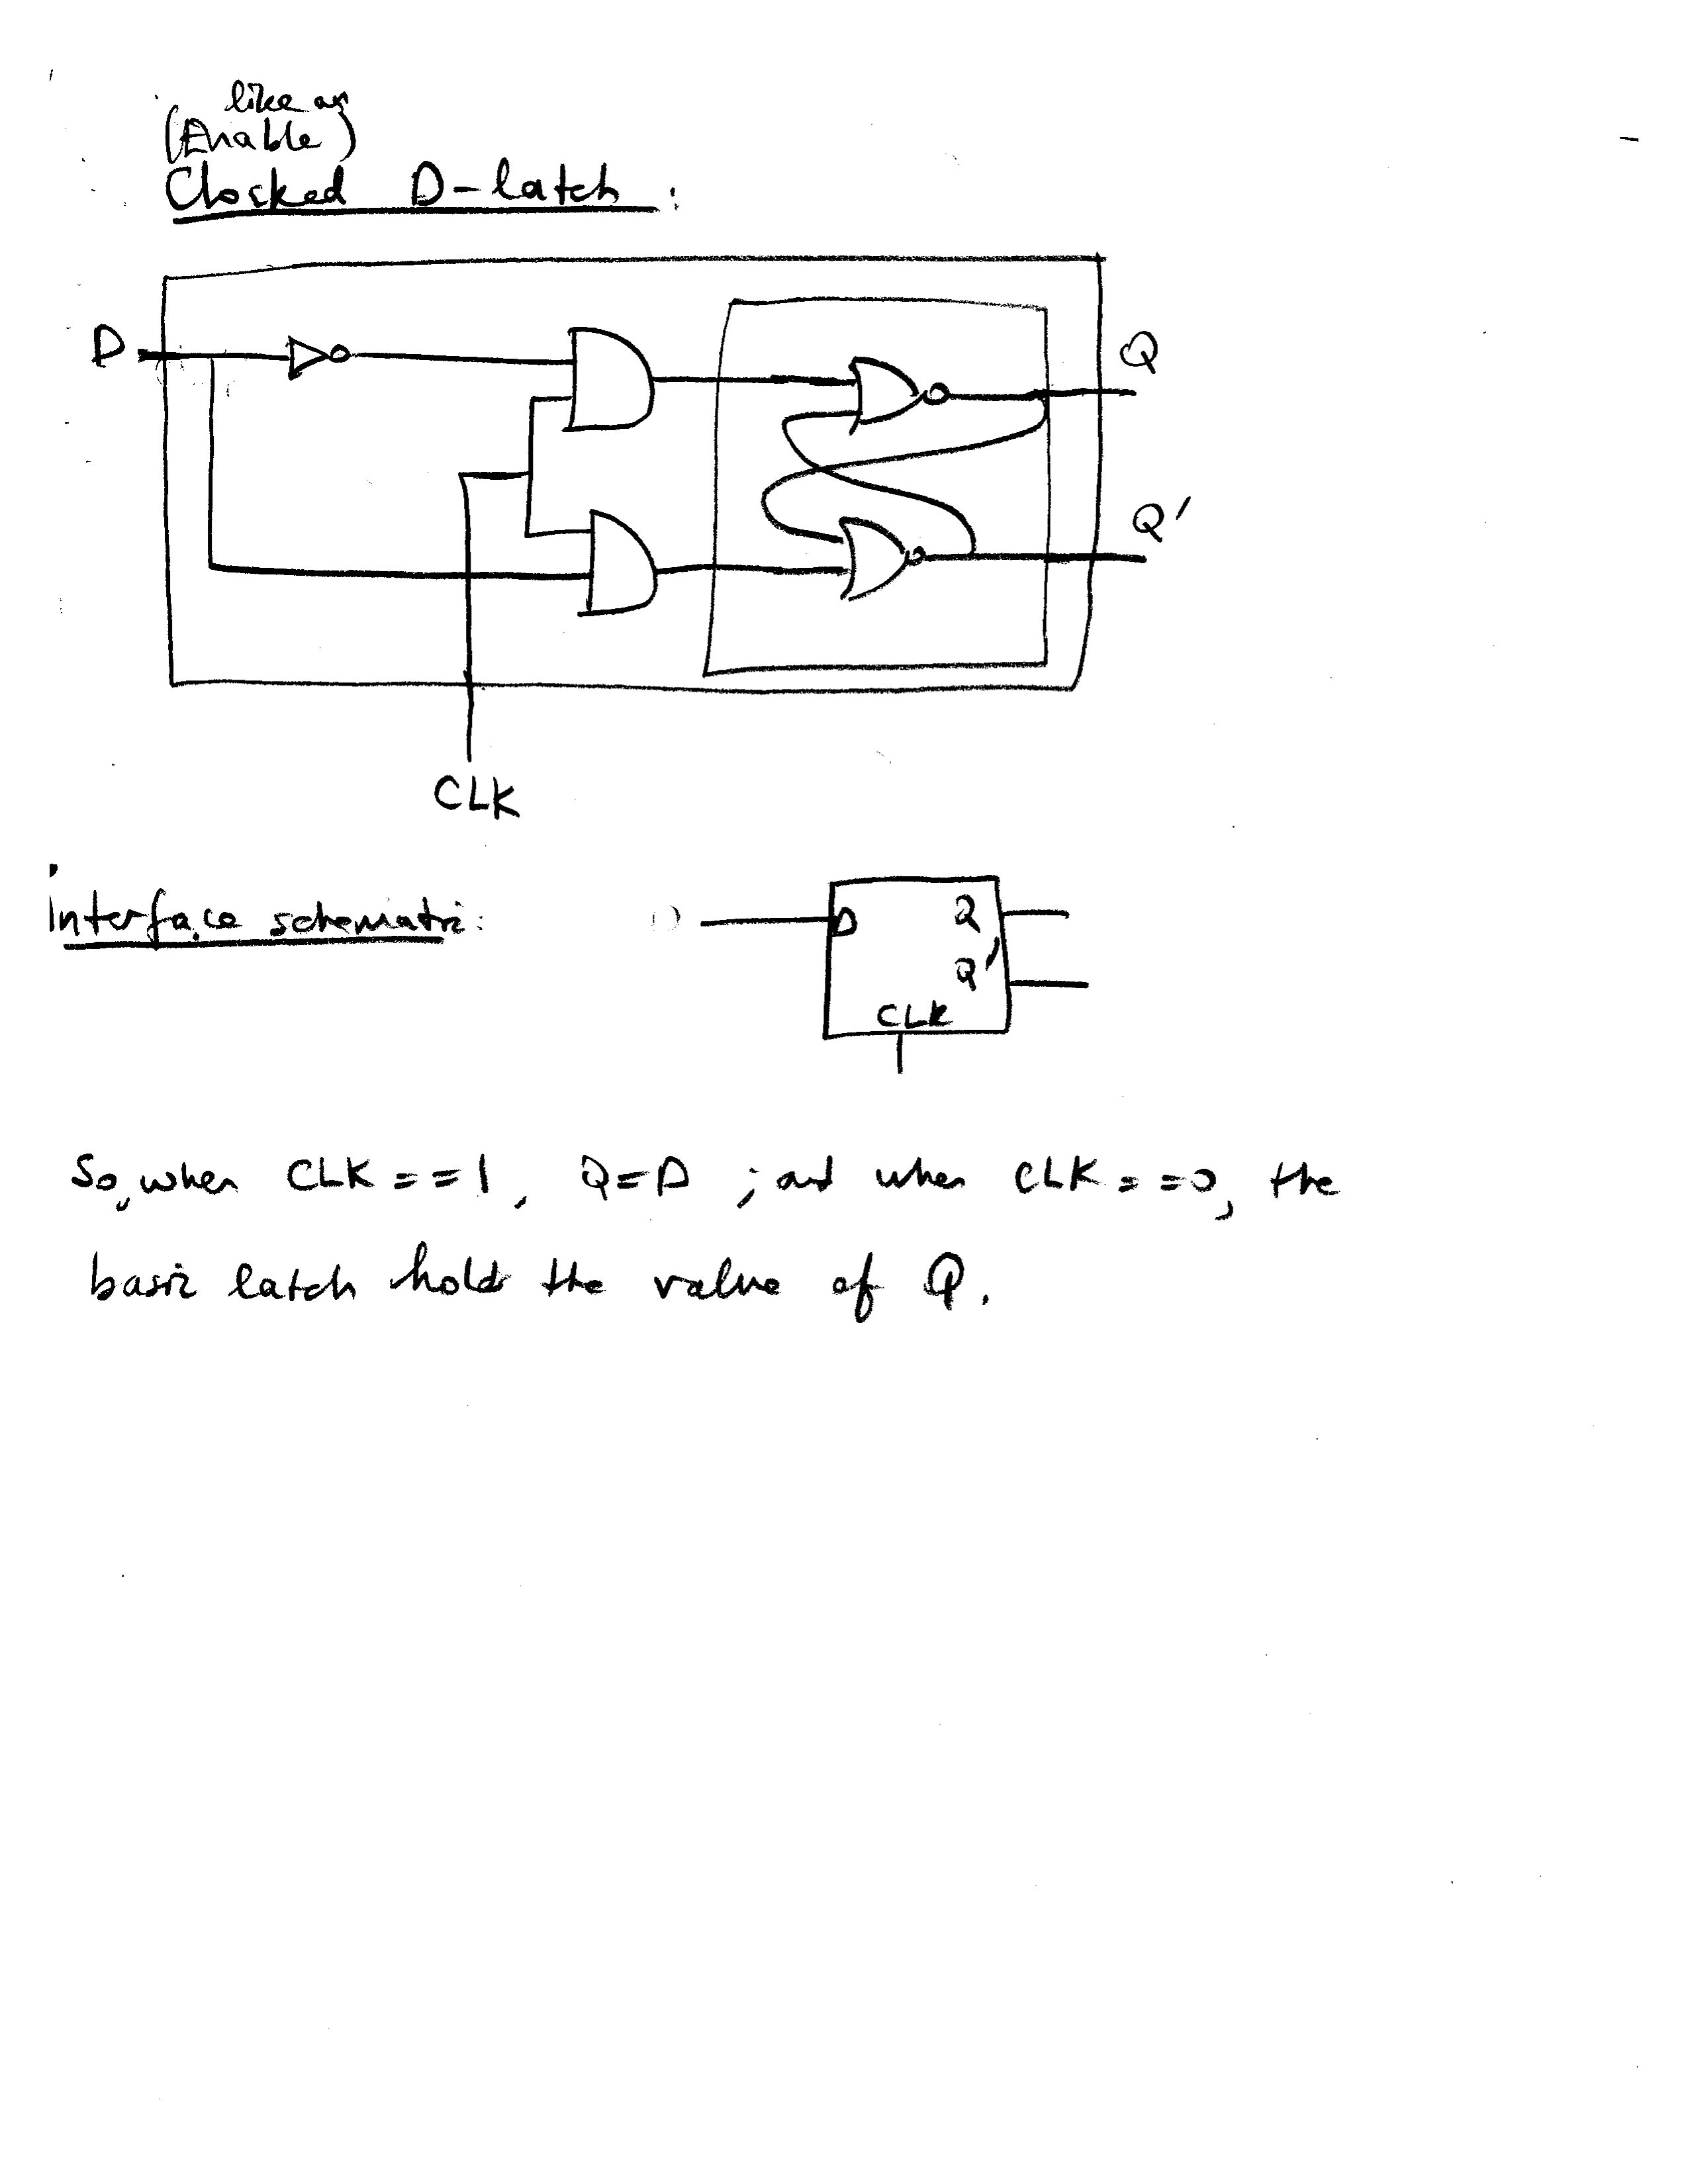 like an
(Enable)
Clocked D-latch :
D
Q
Q'
CLK
interface schematic:
D
Q
Q'
CLK
So, when CLK = = 1, Q = D ; and when CLK = = 0, the
basic latch holds the value of Q.